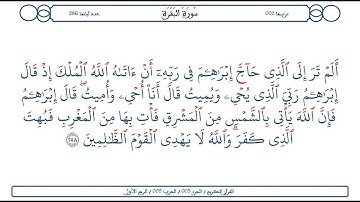 ترتيبها 002
سُورَةُ البَقَرَةِ
عدد آياتها 286
أَلَمْ تَرَ إِلَى ٱلَّذِى حَآجَّ إِبْرَٰهِـۧمَ فِى رَبِّهِۦٓ أَنْ ءَاتَىٰهُ ٱللَّهُ ٱلْمُلْكَ إِذْ قَالَ
إِبْرَٰهِـۧمُ رَبِّىَ ٱلَّذِى يُحْىِۦ وَيُمِيتُ قَالَ أَنَا۠ أُحْىِۦ وَأُمِيتُ ۖ قَالَ إِبْرَٰهِـۧمُ
فَإِنَّ ٱللَّهَ يَأْتِى بِٱلشَّمْسِ مِنَ ٱلْمَشْرِقِ فَأْتِ بِهَا مِنَ ٱلْمَغْرِبِ فَبُهِتَ
ٱلَّذِى كَفَرَ ۗ وَٱللَّهُ لَا يَهْدِى ٱلْقَوْمَ ٱلظَّـٰلِمِينَ ٢٥٨
القرآن الكريم / الجزء 003 / الحزب 005 / الربع الأول